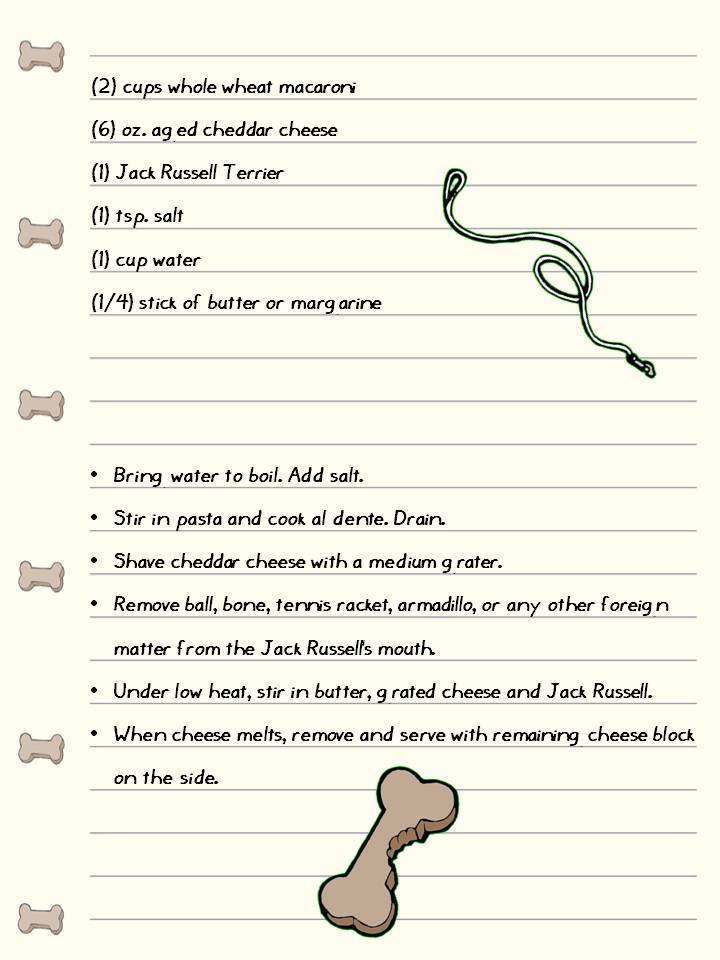 (2) cups whole wheat macaroni
(6) oz. aged cheddar cheese
(1) Jack Russell Terrier
(1) tsp. salt
(1) cup water
(1/4) stick of butter or margarine
• Bring water to boil. Add salt.
• Stir in pasta and cook al dente. Drain.
• Shave cheddar cheese with a medium grater.
• Remove ball, bone, tennis racket, armadillo, or any other foreign
matter from the Jack Russell's mouth.
• Under low heat, stir in butter, grated cheese and Jack Russell.
• When cheese melts, remove and serve with remaining cheese block
on the side.